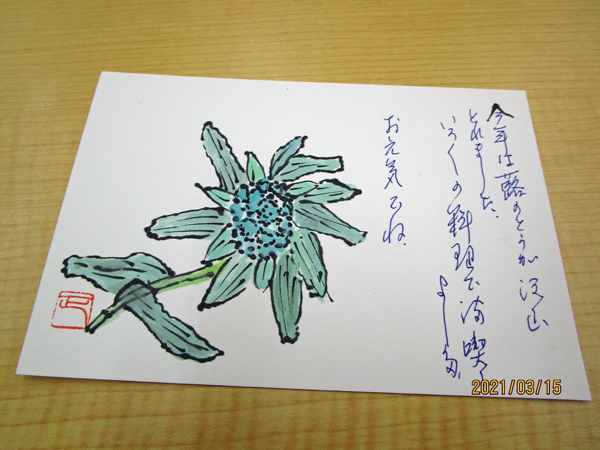 今年は蕗のとうが沢山
とれました、
いろくの料理で満喫
しました。
お元気でね。
2021/03/15